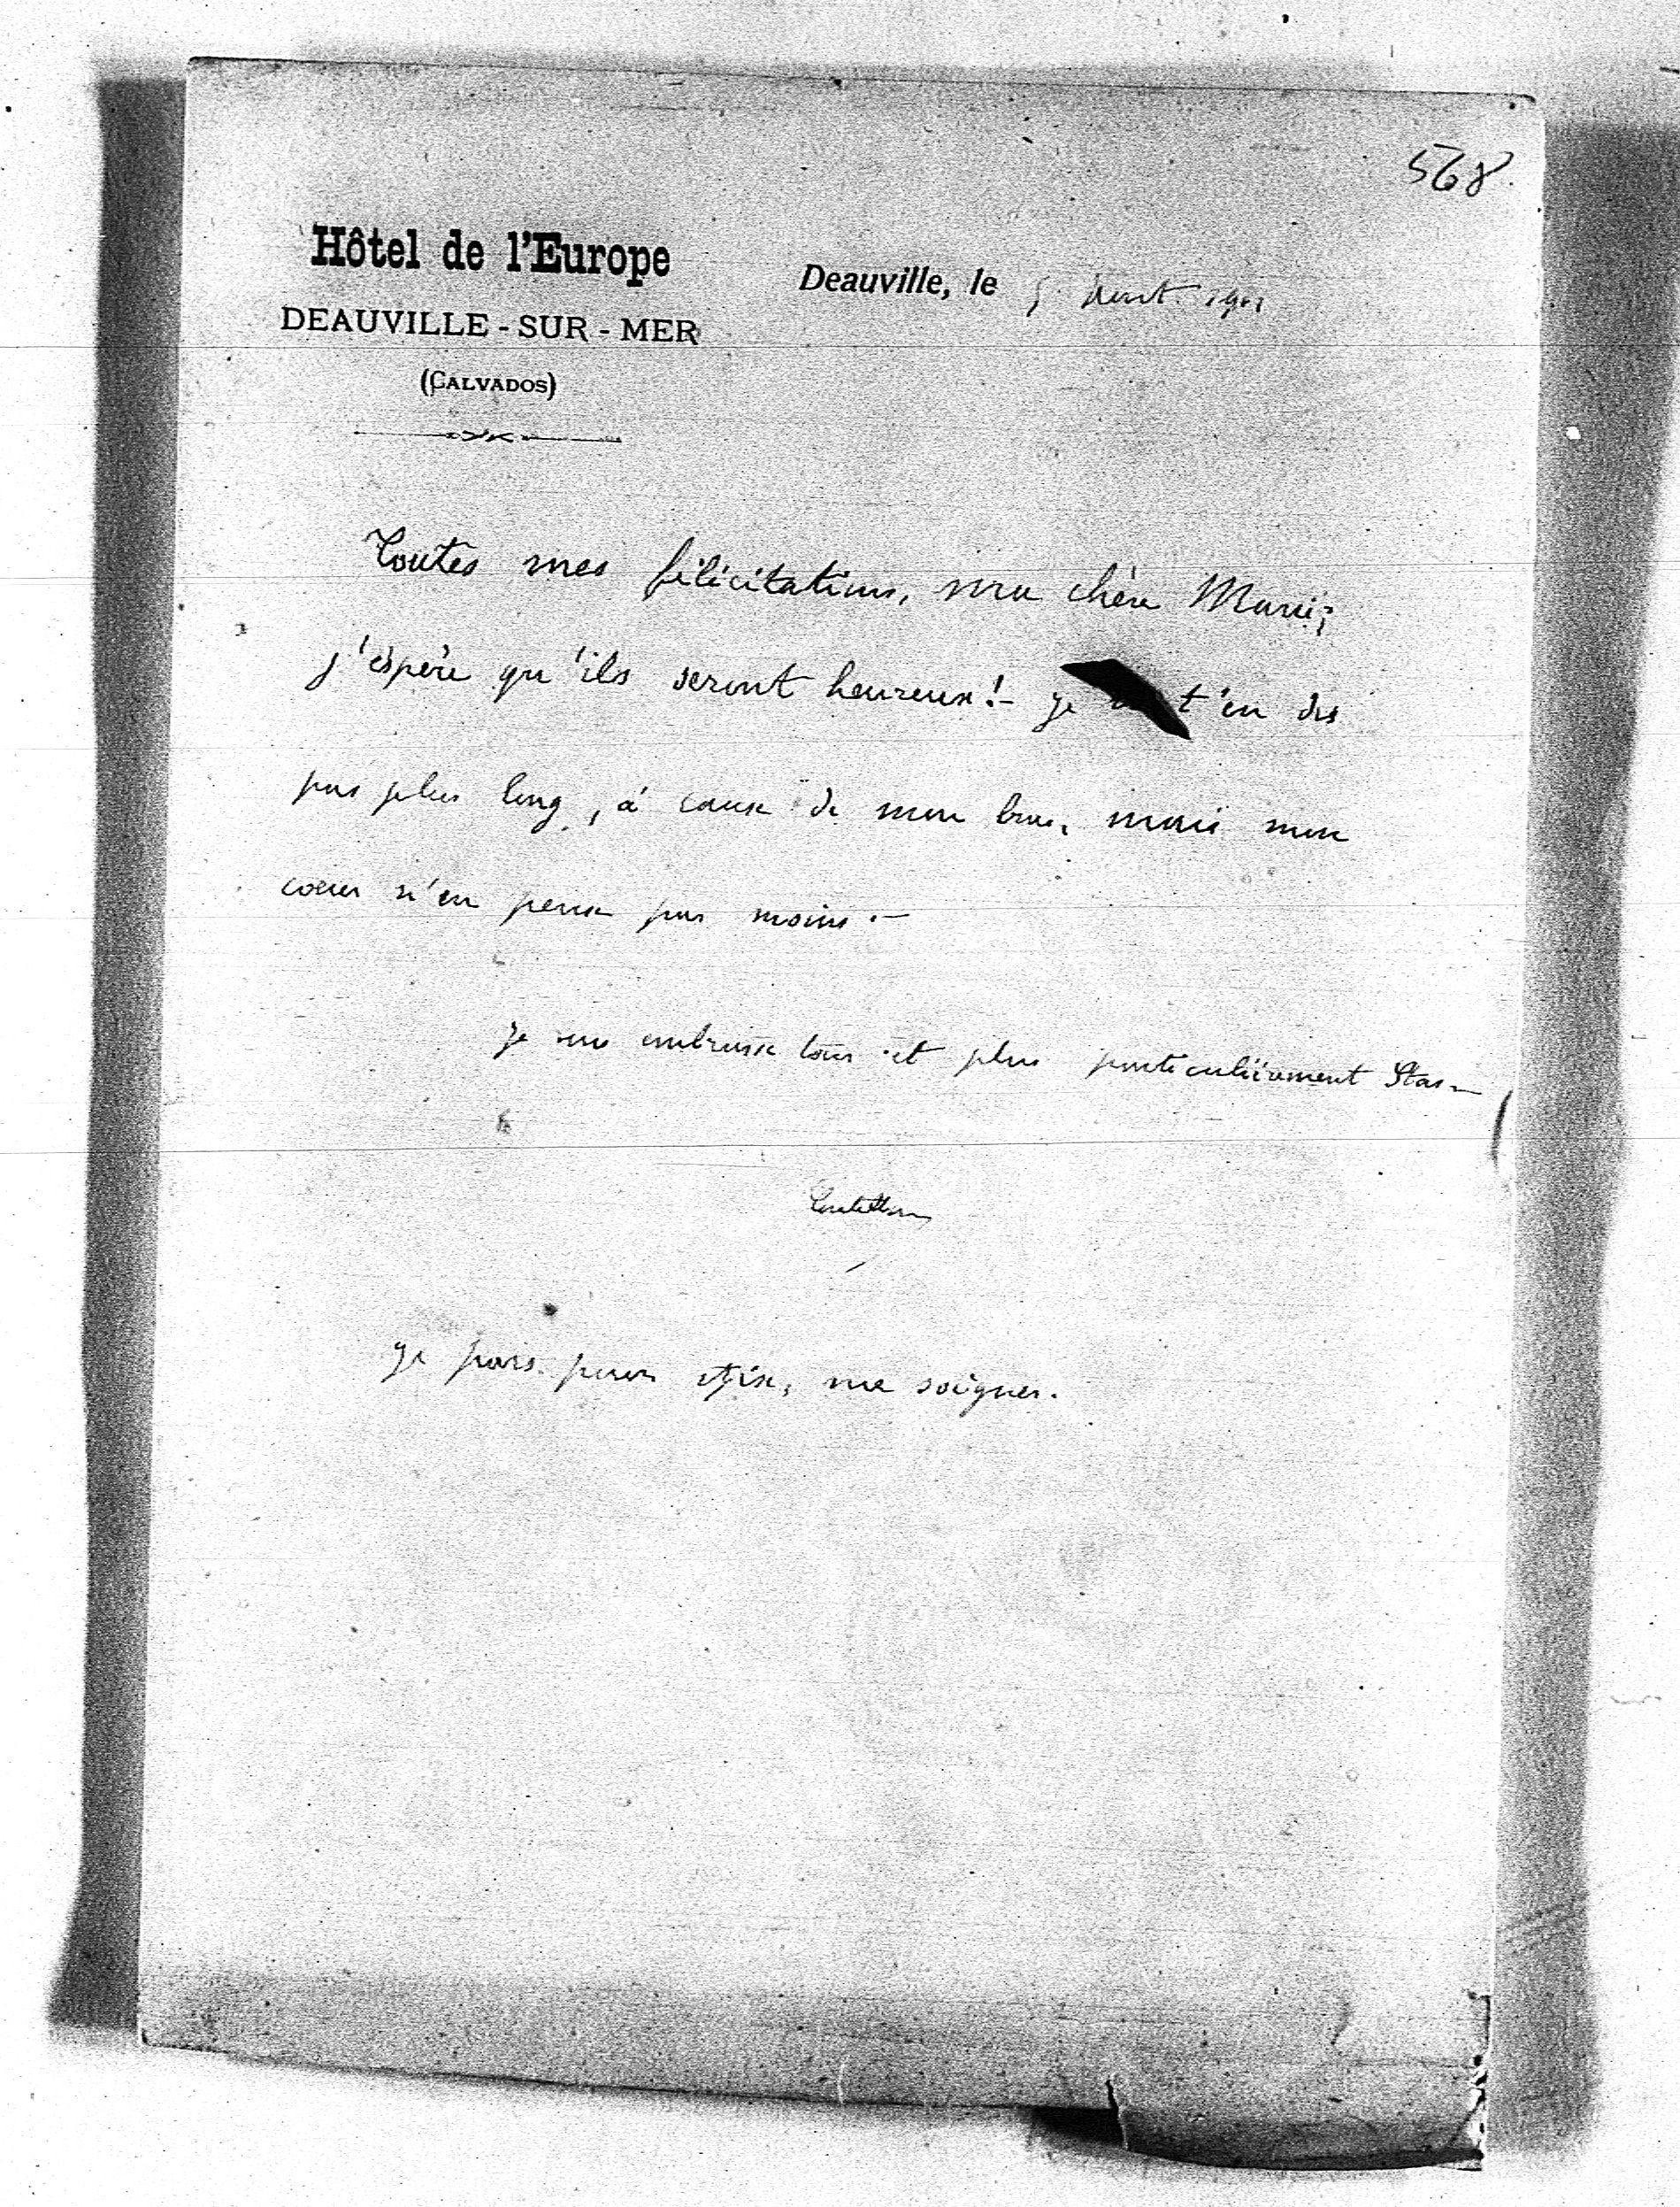 568
Hôtel de l'Europe
DEAUVILLE-SUR-MER
(CALVADOS)
Deauville, le 5. Aout. 1901
Toutes mes félicitations, ma chère Marie;
j'espère qu'ils seront heureux!- je t'en dis
pas plus long, à cause de mon bras, mais mon
coeur n'en pense pas moins.-
Je vous embrasse tous et plus particulièrement Stas-
Je pars pour Aix, me soigner.